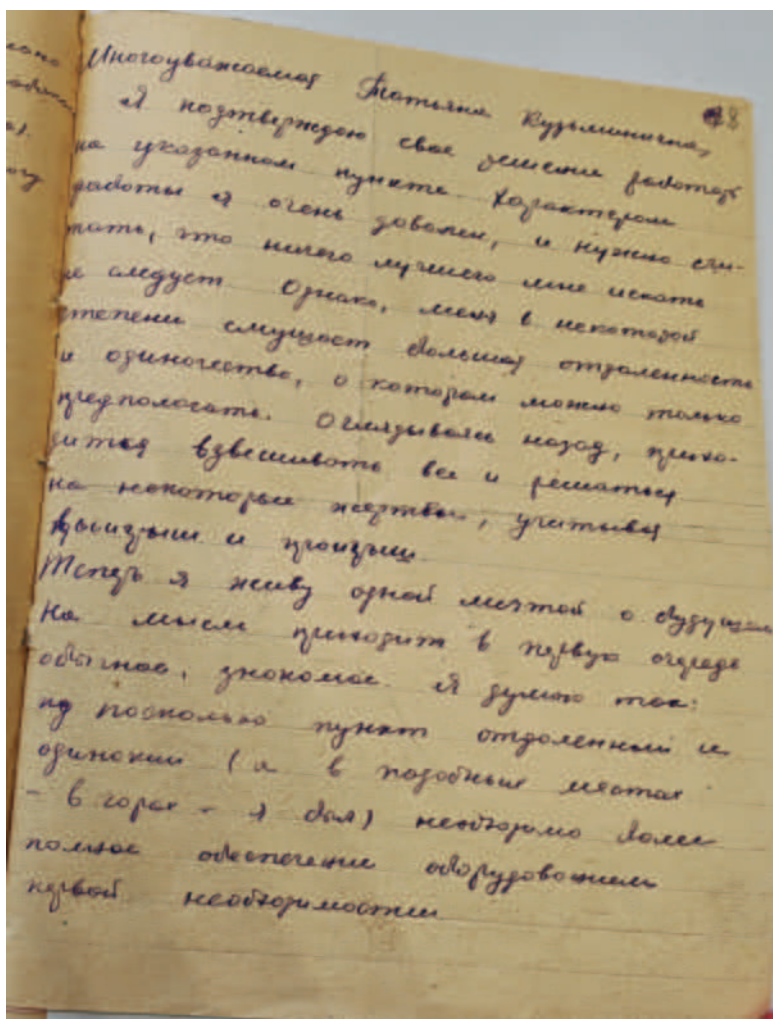 8
Многоуважаемая Татьяна Кузьминична,
Я подтверждаю свое решение работать
на указанном пункте. Характером
работы я очень доволен, и нужно счи-
тать, что ничего лучшего мне искать
не следует. Однако, меня в некоторой
степени смущает большая отдаленность
и одиночество, о котором можно только
предполагать. Оглядываясь назад, прихо-
дится взвешивать все и решаться
на некоторые жертвы, учитывая
выигрыши и проигрыши.
Теперь я живу одной мечтой о будущем
На мысль приходит в первую очередь
обычное, знакомое. Я думаю так:
поскольку пункт отдаленный и
одинокий (а в подобных местах
- в горах - я был) необходимо более
полное обеспечение оборудованием
первой необходимости